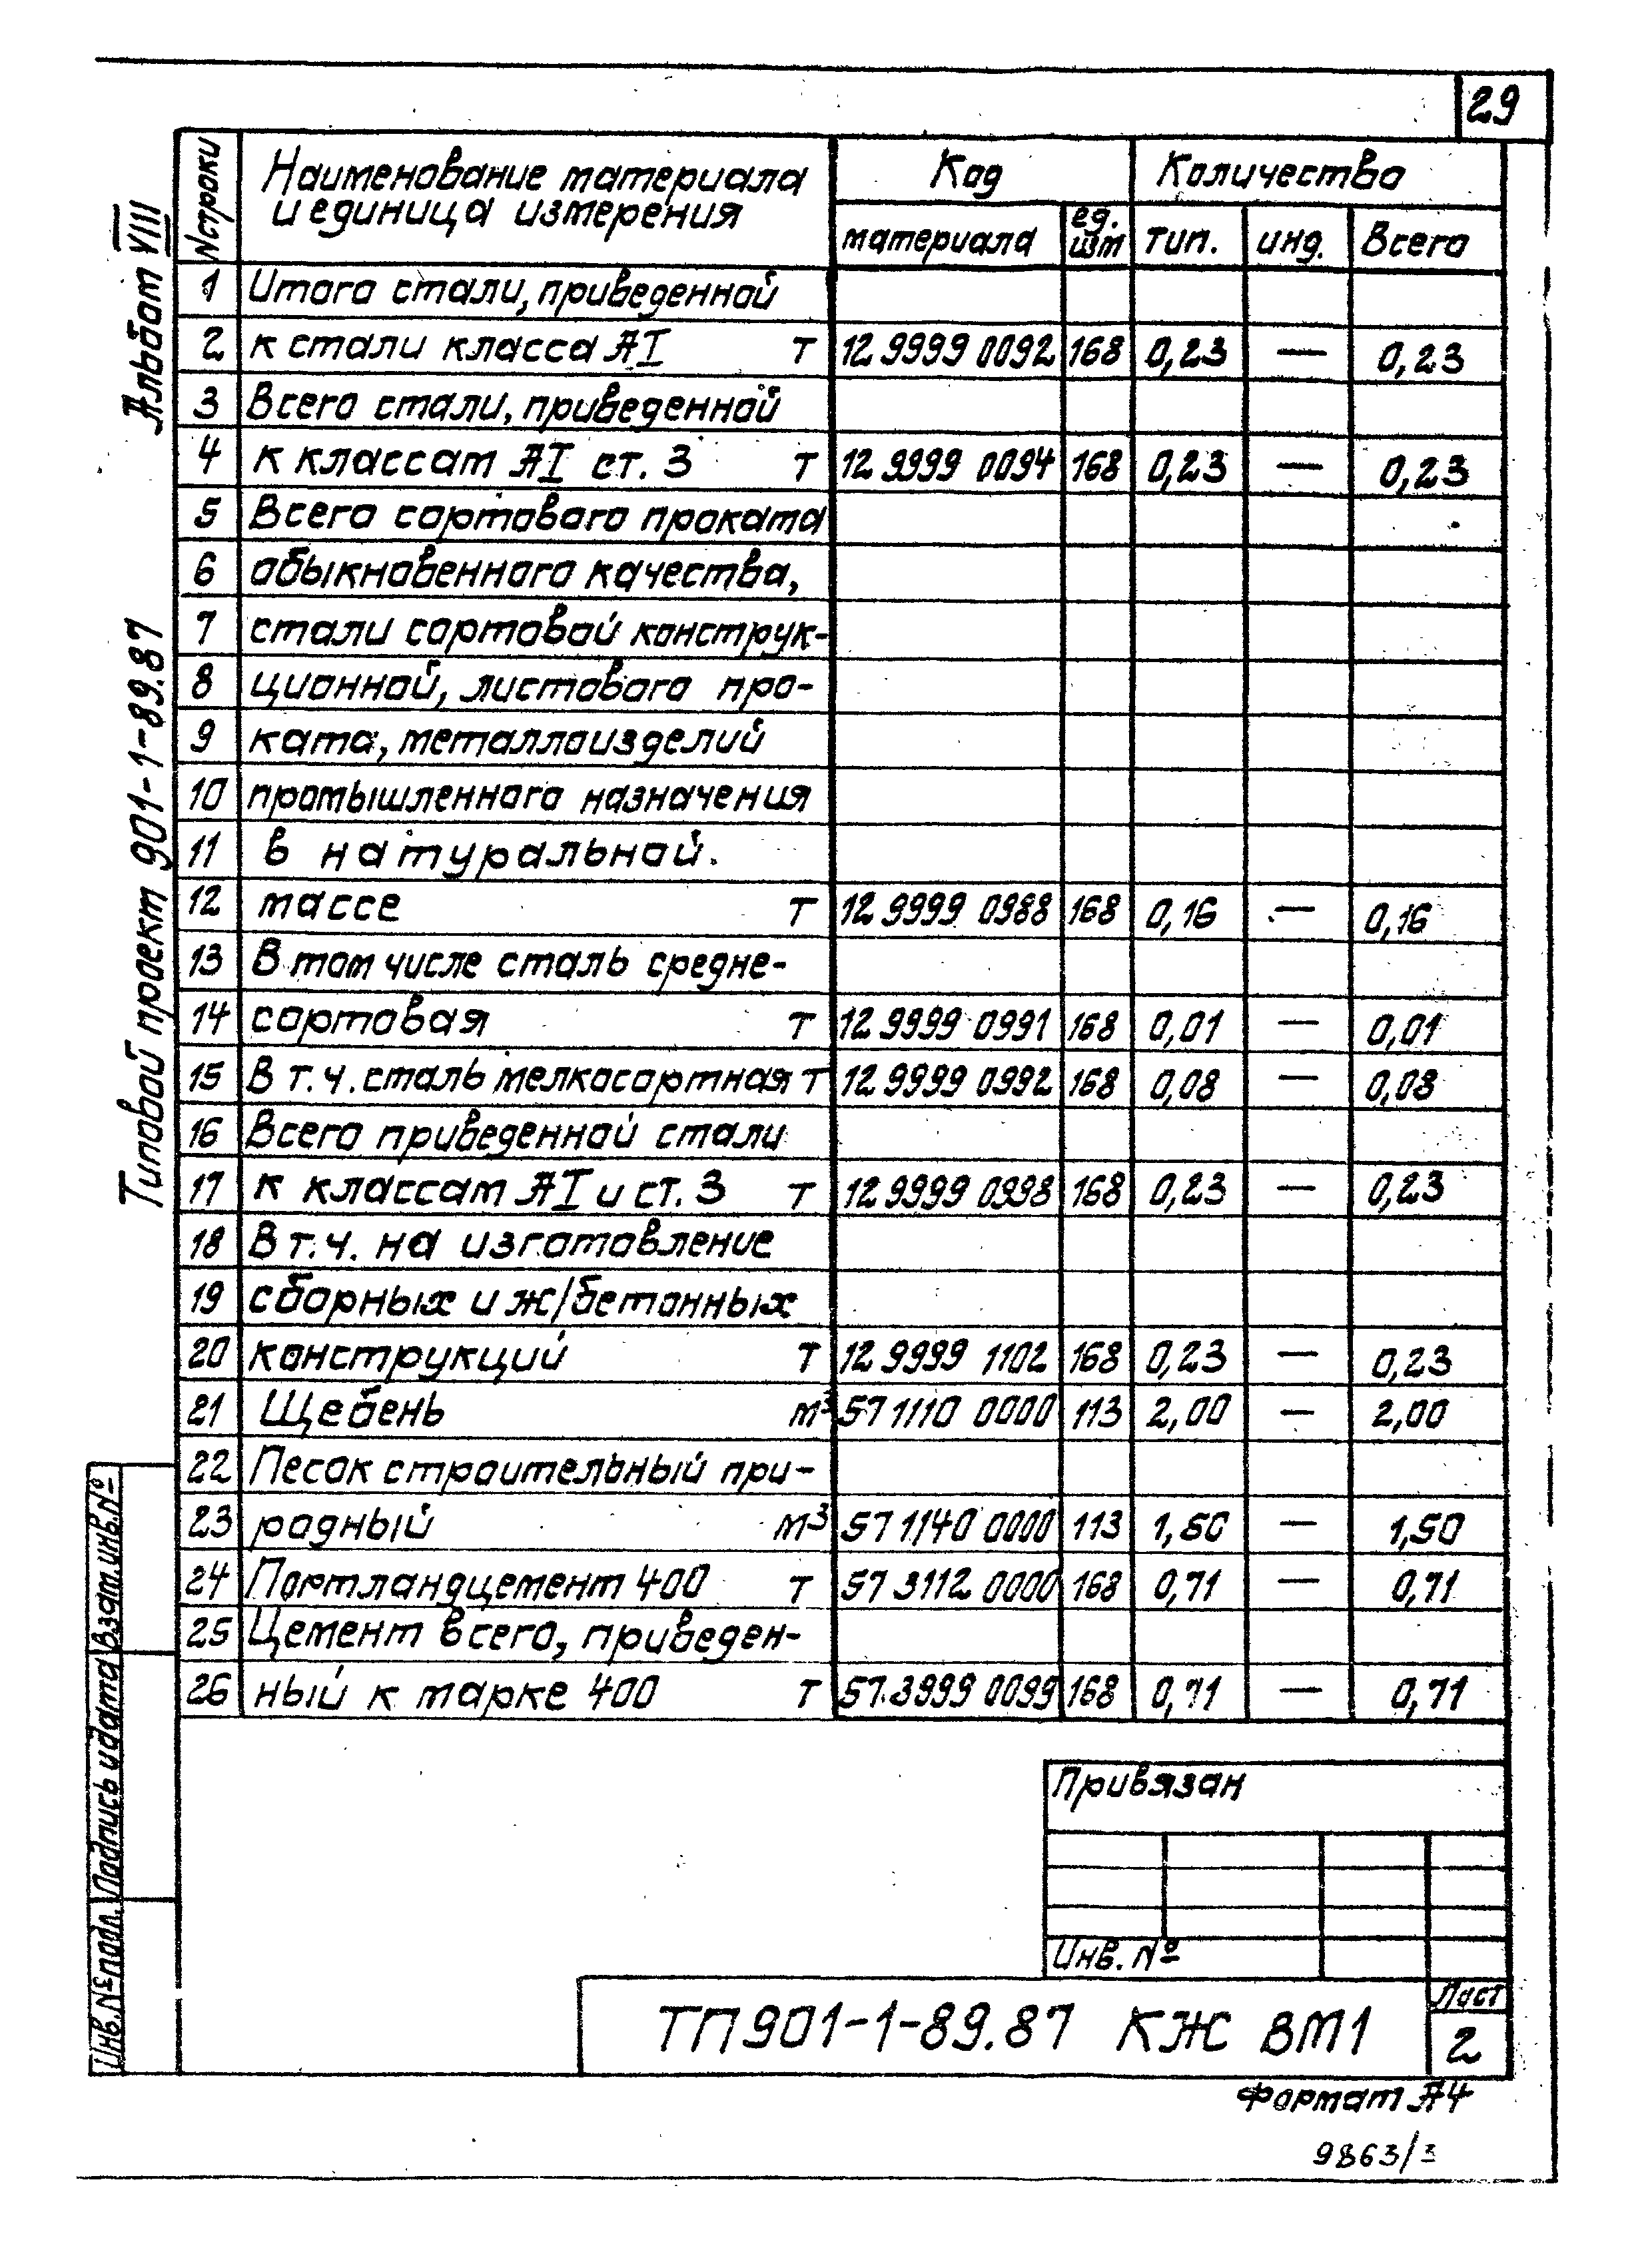 29
Альбом VIII
Типовой проект 901-1-89.87
№строки
Наименование материала
и единица измерения
Код
Количество
материала
ед.
изм
тип.
инд.
Всего
1 Итого стали, приведенной
2 к стали класса АI т 12 9999 0092 168 0,23 — 0,23
3 Всего стали, приведенной
4 к классам АI ст. 3 т 12 9999 0094 168 0,23 — 0,23
5 Всего сортового проката
6 обыкновенного качества,
7 стали сортовой конструк-
8 ционной, листового про-
9 ката, металлоизделий
10 промышленного назначения
11 в натуральной.
12 массе т 12 9999 0988 168 0,16 — 0,16
13 В том числе сталь средне-
14 сортовая т 12 9999 0991 168 0,01 — 0,01
15 В т.ч. сталь мелкосортная т 12 9999 0992 168 0,08 — 0,08
16 Всего приведенной стали
17 к классам АI и ст. 3 т 12 9999 0998 168 0,23 — 0,23
18 В т.ч. на изготовление
19 сборных и ж/бетонных
20 конструкций т 12 9999 1102 168 0,23 — 0,23
21 Щебень м³ 57 1110 0000 113 2,00 — 2,00
22 Песок строительный при-
23 родный м³ 57 1140 0000 113 1,50 — 1,50
24 Портландцемент 400 т 57 3112 0000 168 0,71 — 0,71
25 Цемент всего, приведен-
26 ный к марке 400 т 57.3999 0099 168 0,71 — 0,71
Взам. инв. №
Подпись и дата
Инв. № подл.
Привязан
Инв. №
ТП901-1-89.87 КЖ ВМ1
Лист
2
Формат А4
9863/3